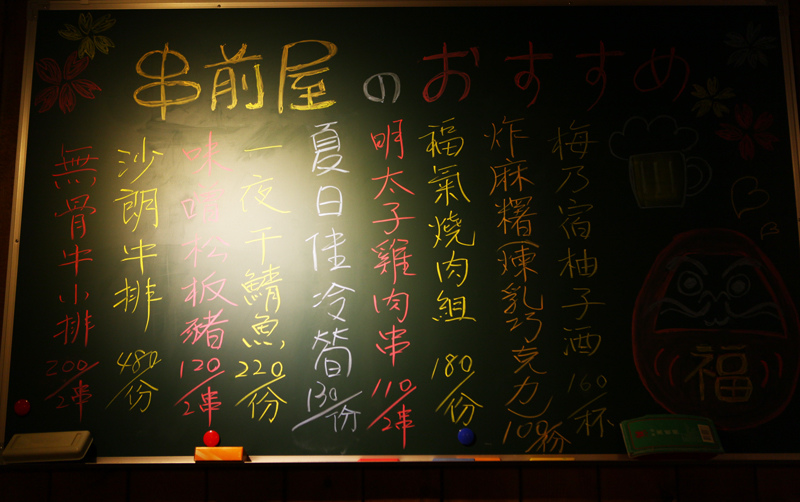 串前屋のおすすめ
梅乃宿柚子酒 160/杯
炸麻糬(煉乳巧克力) 100/份
福氣燒肉組 180/份
明太子雞肉串 110/2串
夏日佳冷筍 130/份
一夜干鯖魚 220/份
味噌松板豬 120/2串
沙朗牛排 480/份
無骨牛小排 200/2串
福